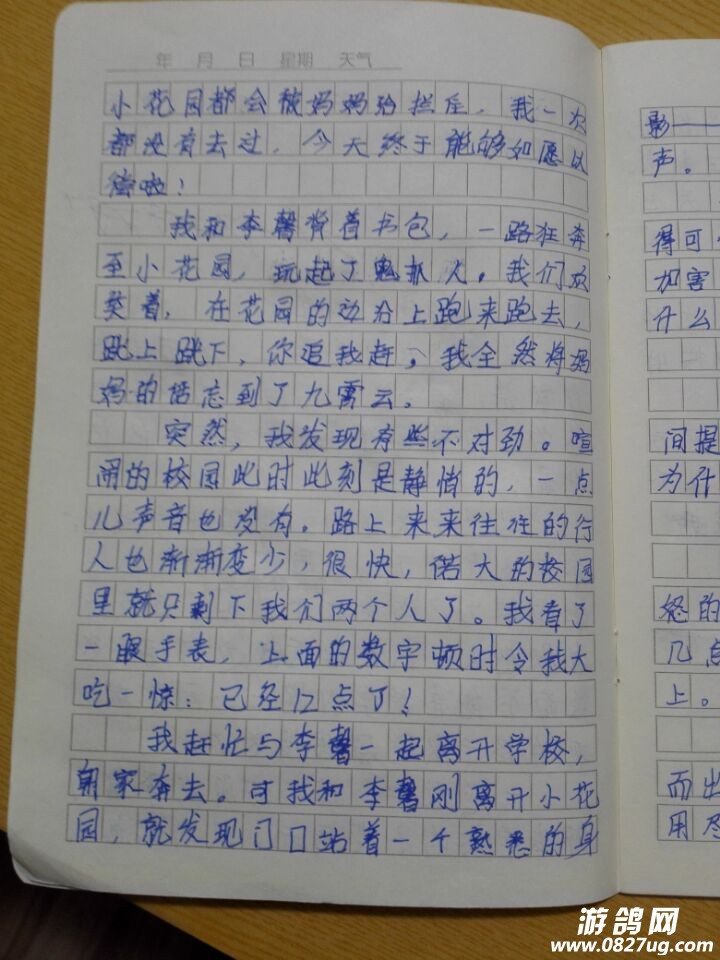 年 月 日 星期 天气
小花园都会被妈妈给拦住,我一次
都没有去过,今天终于能够如愿以
偿啦!
我和李馨背着书包,一路狂奔
至小花园,玩起了鬼抓人。我们欢
笑着,在花园的边分上跑来跑去,
跳上跳下,你追我赶,我全然将妈
妈的话忘到了九霄云。
突然,我发现有些不对劲。喧
闹的校园此时此刻是静悄的,一点
儿声音也没有。路上来来往往的行
人也渐渐变少,很快,偌大的校园
里就只剩下我们两个人了。我看了
一眼手表,上面的数字顿时令我大
吃一惊:已经12点了!
我赶忙与李馨一起离开学校,
朝家奔去。可我和李馨刚离开小花
园,就发现门口站着一个熟悉的身
影——
声。
得可
加害
什么
间提
为什
怒的
几点
上。
而出
用尽
游鸽网
www.0827ug.com